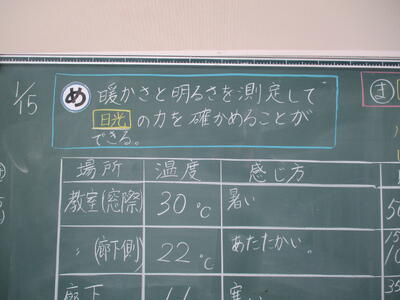 1/15
め 暖かさと明るさを測定して
日光の力を確かめることが
できる。
場所 温度 感じ方
教室(窓際) 30℃ 暑い
〃(廊下側) 22℃ あたたかい。
廊下
ま